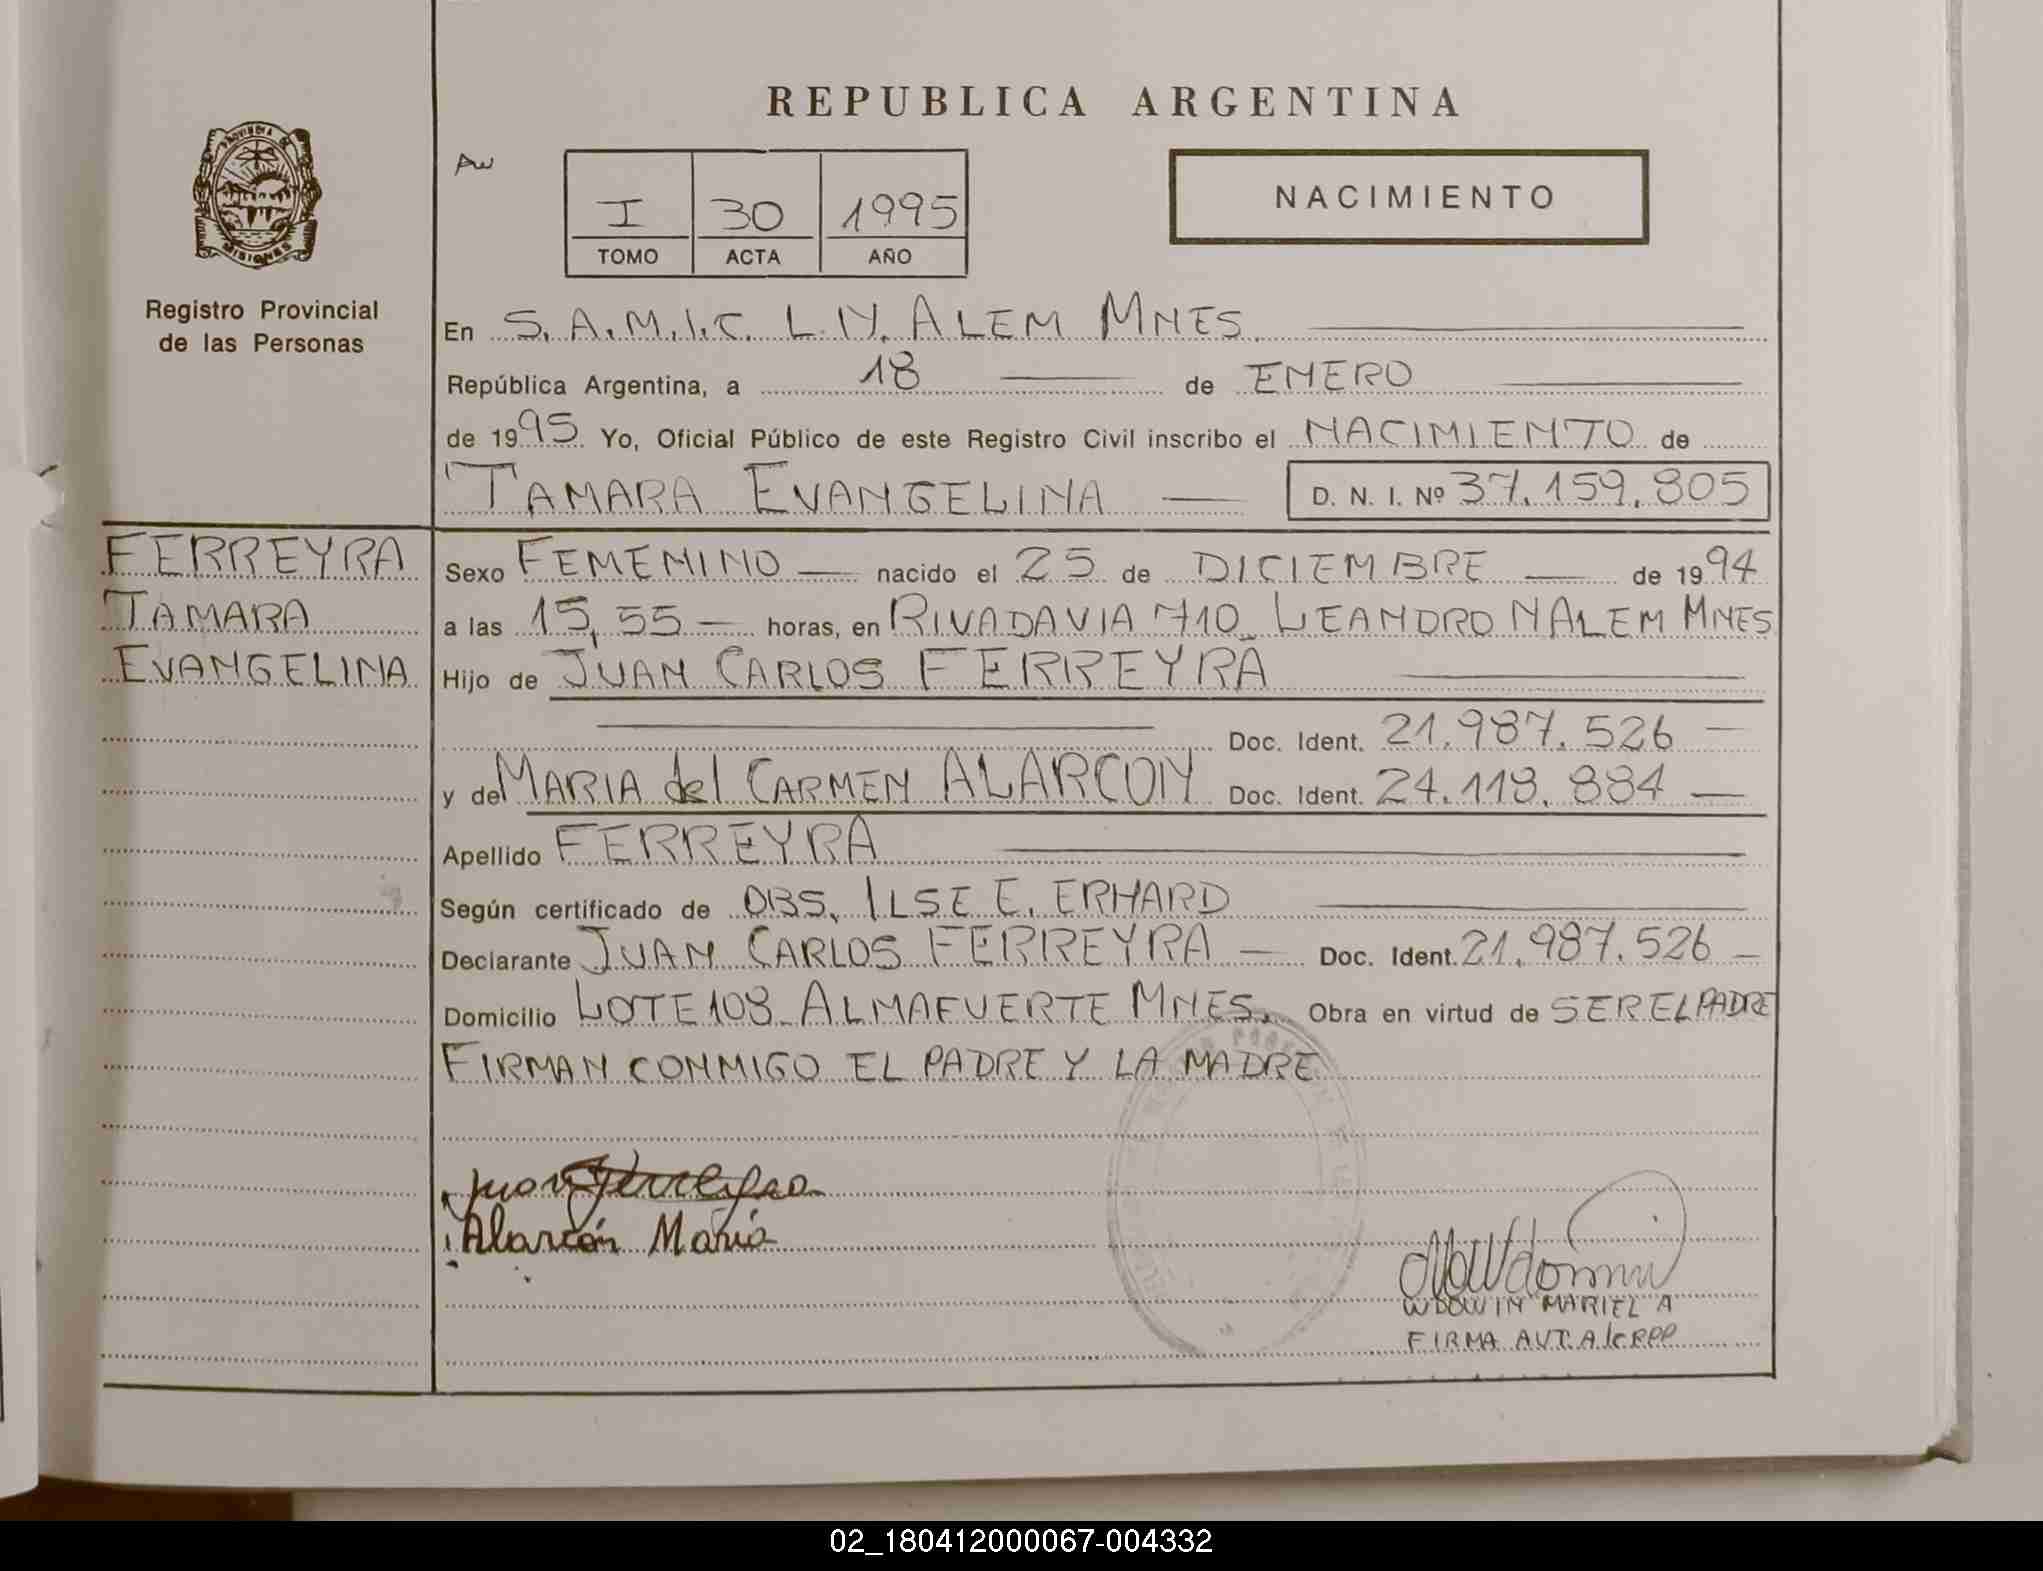 REPUBLICA ARGENTINA
PROVINCIA DE
MISIONES
Registro Provincial
de las Personas
I 30 1995
TOMO ACTA AÑO
NACIMIENTO
En S.A.M.I.C. L.N. ALEM MNES.
República Argentina, a 18 de ENERO
de 1995 Yo, Oficial Público de este Registro Civil inscribo el NACIMIENTO de
TAMARA EVANGELINA D. N. I. Nº 37.159.805
FERREYRA
TAMARA
EVANGELINA
Sexo FEMENINO nacido el 25 de DICIEMBRE de 1994
a las 15,55 horas, en RIVADAVIA 710_ LEANDRO N ALEM MNES
Hijo de JUAN CARLOS FERREYRA
Doc. Ident. 21.987.526
y de MARIA del CARMEN ALARCON Doc. Ident. 24.118.884
Apellido FERREYRA
Según certificado de OBS. ILSE E. ERHARD
Declarante JUAN CARLOS FERREYRA Doc. Ident. 21.987.526
Domicilio LOTE 108_ ALMAFUERTE MNES. Obra en virtud de SER EL PADRE
FIRMAN CONMIGO EL PADRE Y LA MADRE
Alarcón Maria
WDOWIN MARIEL A
FIRMA AUT. A/c RPP
02_180412000067-004332